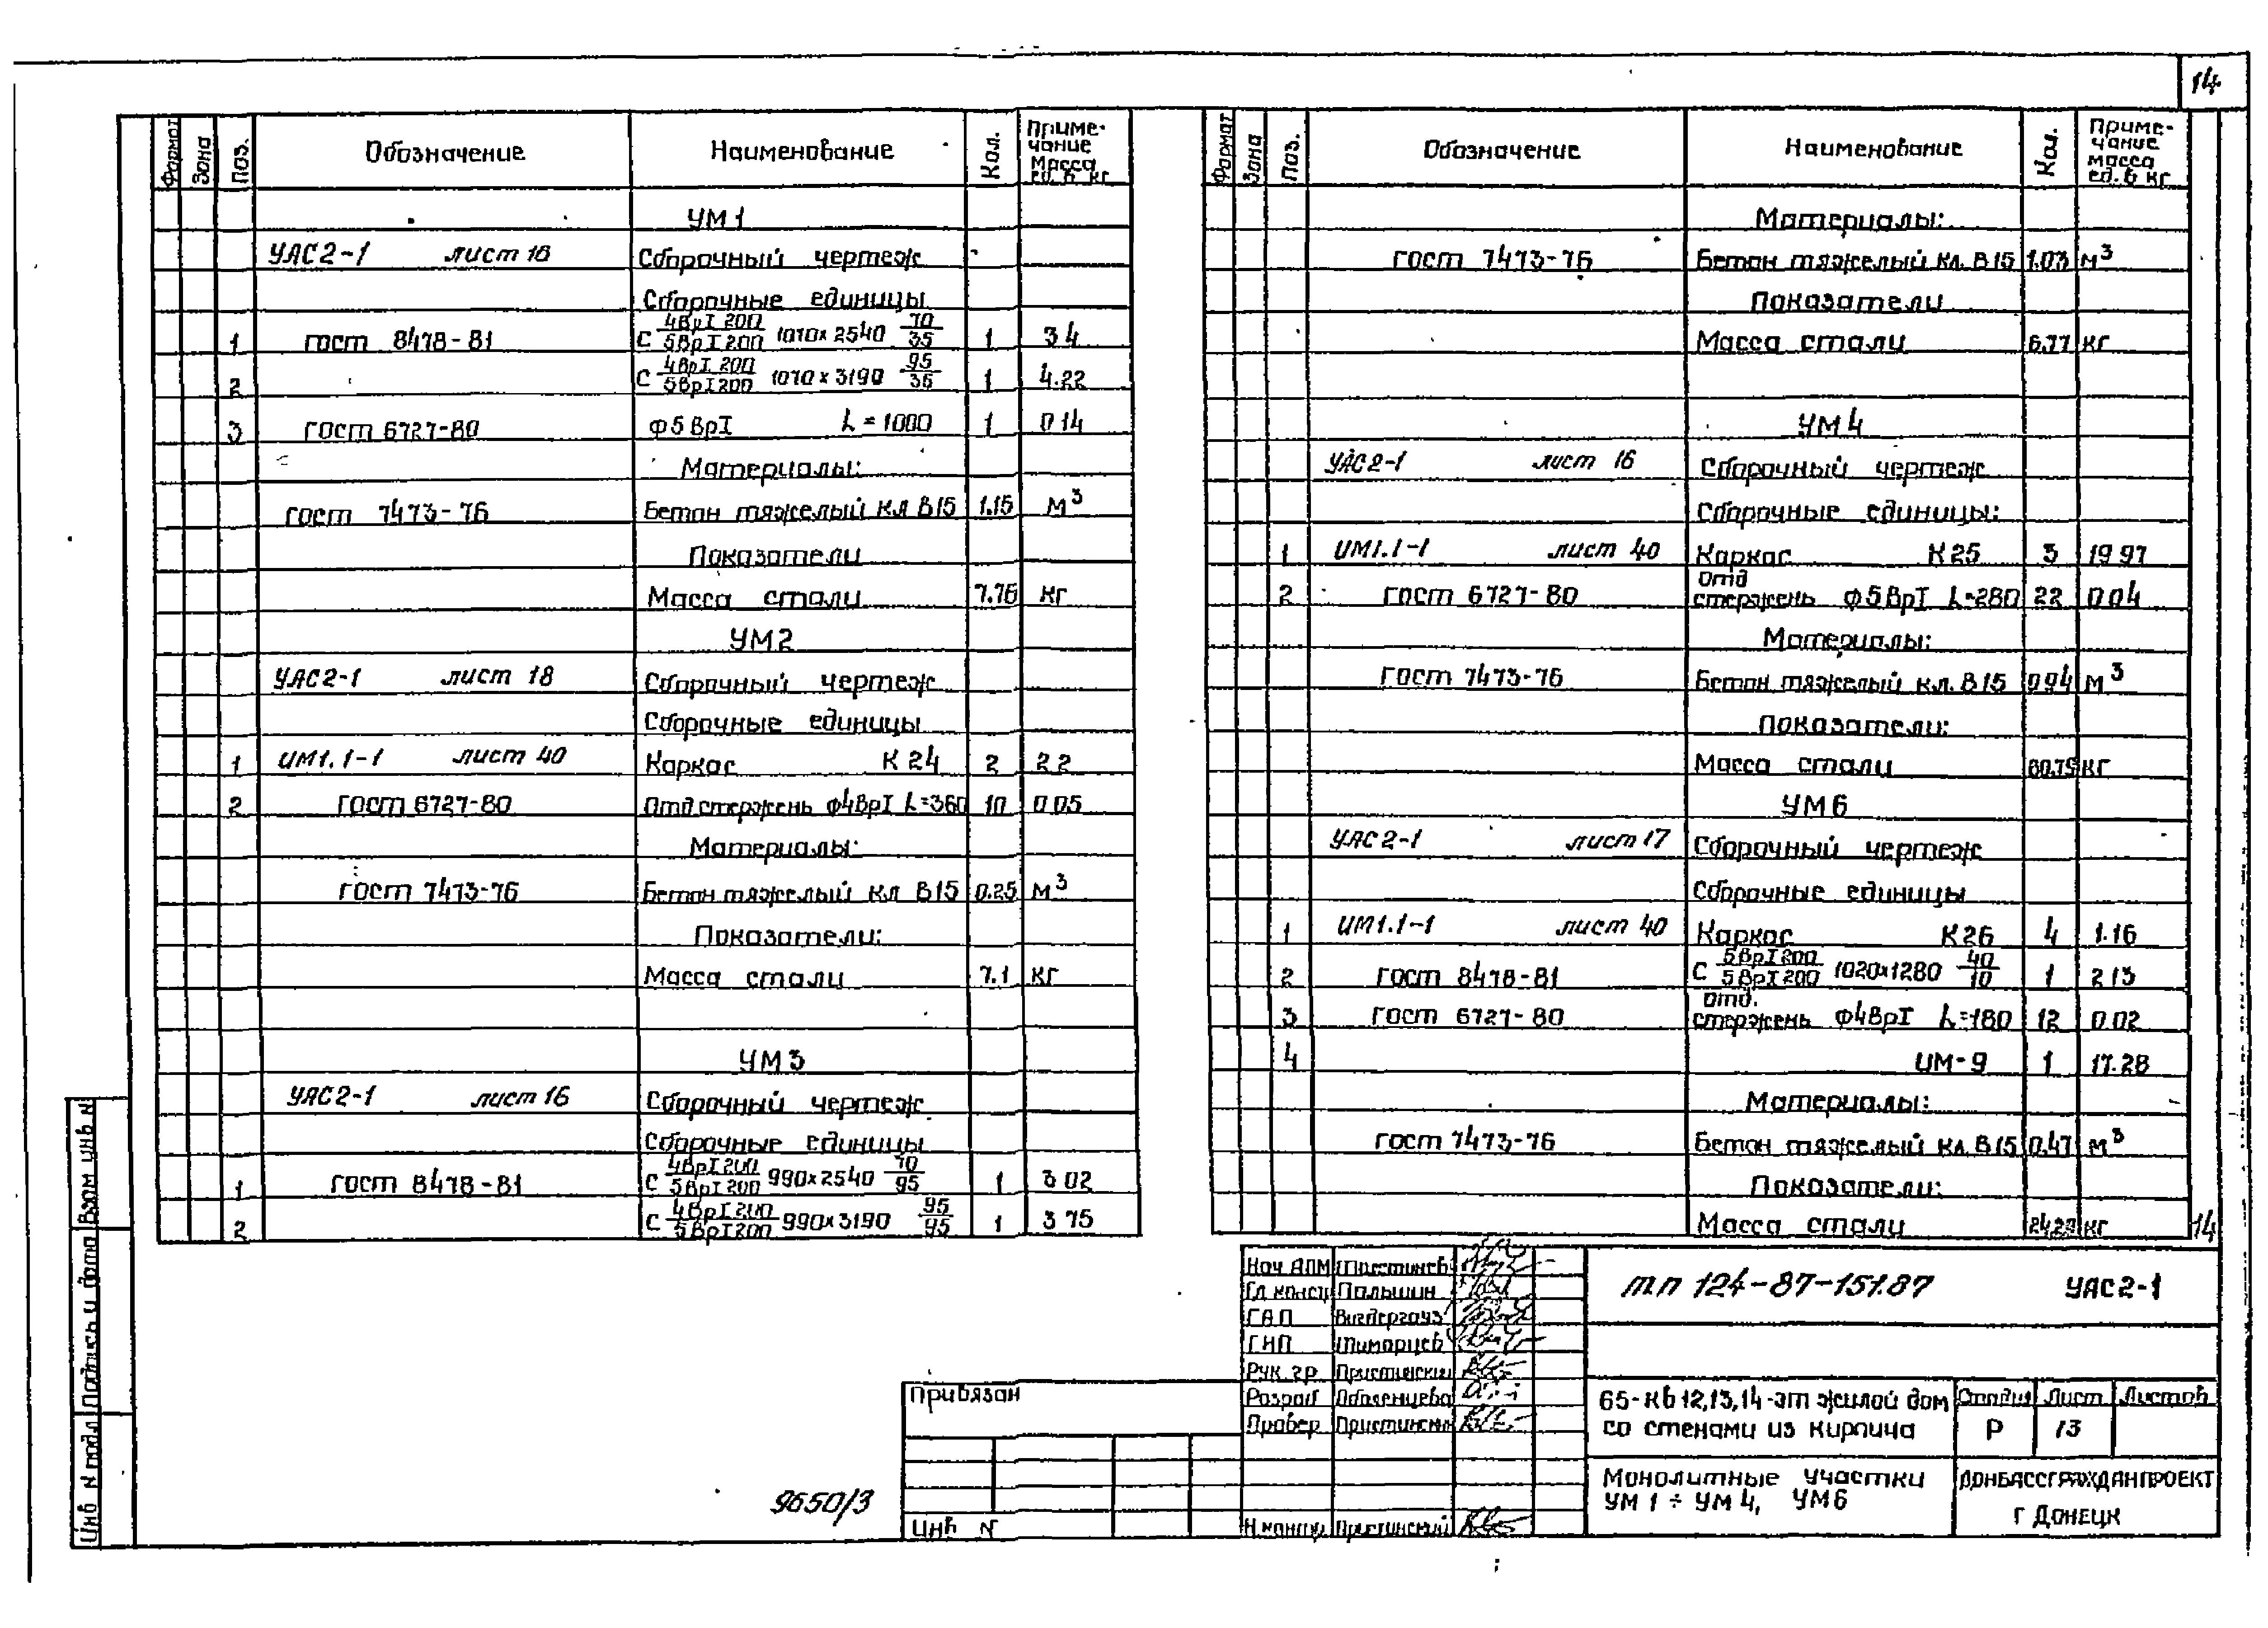 14
Формат Зона Поз. Обозначение Наименование Кол. Примечание масса ед. в кг
УМ1
УАС2-1 лист 16 Сборочный чертеж
Сборочные единицы
1 ГОСТ 8478-81 С 4ВрI 200/5ВрI 200 1010×2540 70/35 1 3 4
2 С 4ВрI 200/5ВрI 200 1010×3190 95/35 1 4.22
3 ГОСТ 6727-80 Ф5ВрI L=1000 1 0 14
Материалы:
ГОСТ 7473-76 Бетон тяжелый кл В15 1.15 м³
Показатели
Масса стали 7.76 кг
УМ2
УАС2-1 лист 18 Сборочный чертеж
Сборочные единицы
1 ИМ1.1-1 лист 40 Каркас К24 2 2 2
2 ГОСТ 6727-80 Отд стержень Ф4ВрI L=360 10 0 05
Материалы:
ГОСТ 7473-76 Бетон тяжелый кл В15 0.25 м³
Показатели:
Масса стали 7.1 кг
УМ3
УАС2-1 лист 16 Сборочный чертеж
Сборочные единицы
1 ГОСТ 8478-81 С 4ВрI 200/5ВрI 200 990×2540 70/95 1 3 02
2 С 4ВрI 200/5ВрI 200 990×3190 95/95 1 3 75
Формат Зона Поз. Обозначение Наименование Кол. Примечание масса ед. в кг
Материалы:
ГОСТ 7473-76 Бетон тяжелый кл. В15 1.03 м³
Показатели
Масса стали 6.77 кг
УМ4
УАС2-1 лист 16 Сборочный чертеж
Сборочные единицы:
1 ИМ1.1-1 лист 40 Каркас К25 3 19 97
2 ГОСТ 6727-80 Отд стержень Ф5ВрI L=280 22 0 04
Материалы:
ГОСТ 7473-76 Бетон тяжелый кл. В15 0 94 м³
Показатели:
Масса стали 60.79 кг
УМ6
УАС2-1 лист 17 Сборочный чертеж
Сборочные единицы
1 ИМ1.1-1 лист 40 Каркас К26 4 1.16
2 ГОСТ 8478-81 С 5ВрI 200/5ВрI 200 1020×1280 40/10 1 2 13
3 ГОСТ 6727-80 Отд. стержень Ф4ВрI L=180 12 0 02
4 ИМ-9 1 17.28
Материалы:
ГОСТ 7473-76 Бетон тяжелый кл. В15 0.47 м³
Показатели:
Масса стали 24.29 кг
14
Взам инв N
Подпись и дата
Инв N подл
9650/3
Привязан
Инв N
Нач АПМ
Гл констр Пальшин
ГАП Выдергауз
ГИП
Рук гр Пристинский
Разраб
Провер Пристинский
Н.контр Пристинский
т.п 124-87-151.87 УАС2-1
65-кв 12,13,14-эт жилой дом
со стенами из кирпича
Стадия Лист Листов
Р 13
Монолитные участки
УМ1÷УМ4, УМ6
ДОНБАССГРАЖДАНПРОЕКТ
г Донецк